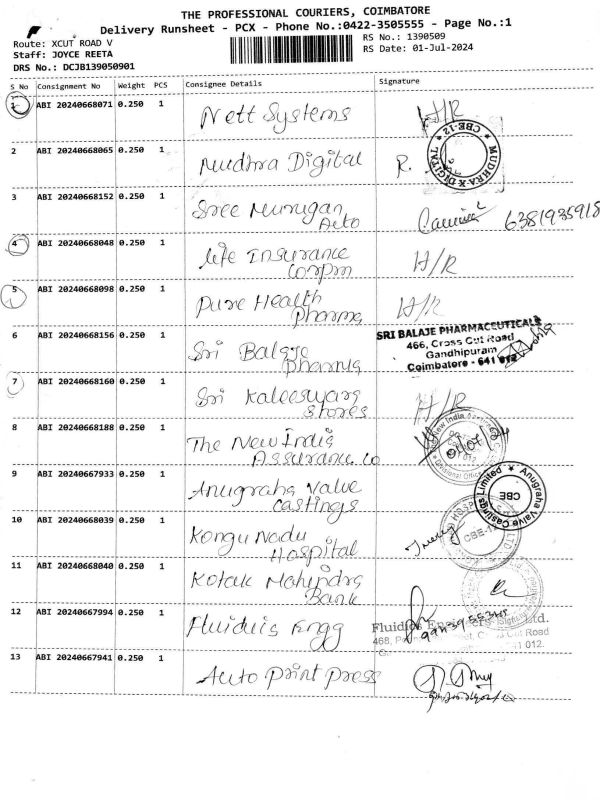 THE PROFESSIONAL COURIERS, COIMBATORE
Delivery Runsheet - PCX - Phone No.:0422-3505555 - Page No.:1
Route: XCUT ROAD V
RS No.: 1390509
Staff: JOYCE REETA
RS Date: 01-Jul-2024
DRS No.: DCJB139050901
S No Consignment No Weight PCS Consignee Details Signature
1 ABI 20240668071 0.250 1 Nett Systems H/R
2 ABI 20240668065 0.250 1 Mudhra Digital R.
MUDHRA X DIGITAL PVT
CBE-12
3 ABI 20240668152 0.250 1 Sree Murugan
Auto
6381935918
4 ABI 20240668048 0.250 1 Life Insurance
Corprn
H/R
5 ABI 20240668098 0.250 1 Pure Health
Pharma
H/R
6 ABI 20240668156 0.250 1 Sri Balaje
Pharma
SRI BALAJE PHARMACEUTICALS
466, Cross Cut Road
Gandhipuram
Coimbatore - 641 012
7 ABI 20240668160 0.250 1 Sri Kaleeswara
Stores
H/R
8 ABI 20240668188 0.250 1 The New India
Assurance. Co
9 ABI 20240667933 0.250 1 Anugraha Valve
Castings
Anugraha Valve Castings Limited
CBE
10 ABI 20240668039 0.250 1 Kongu Nadu
Hospital
CBE-12
11 ABI 20240668040 0.250 1 Kotak Mahindra
Bank
12 ABI 20240667994 0.250 1 Fluidics Engg
13 ABI 20240667941 0.250 1 Auto Print Press